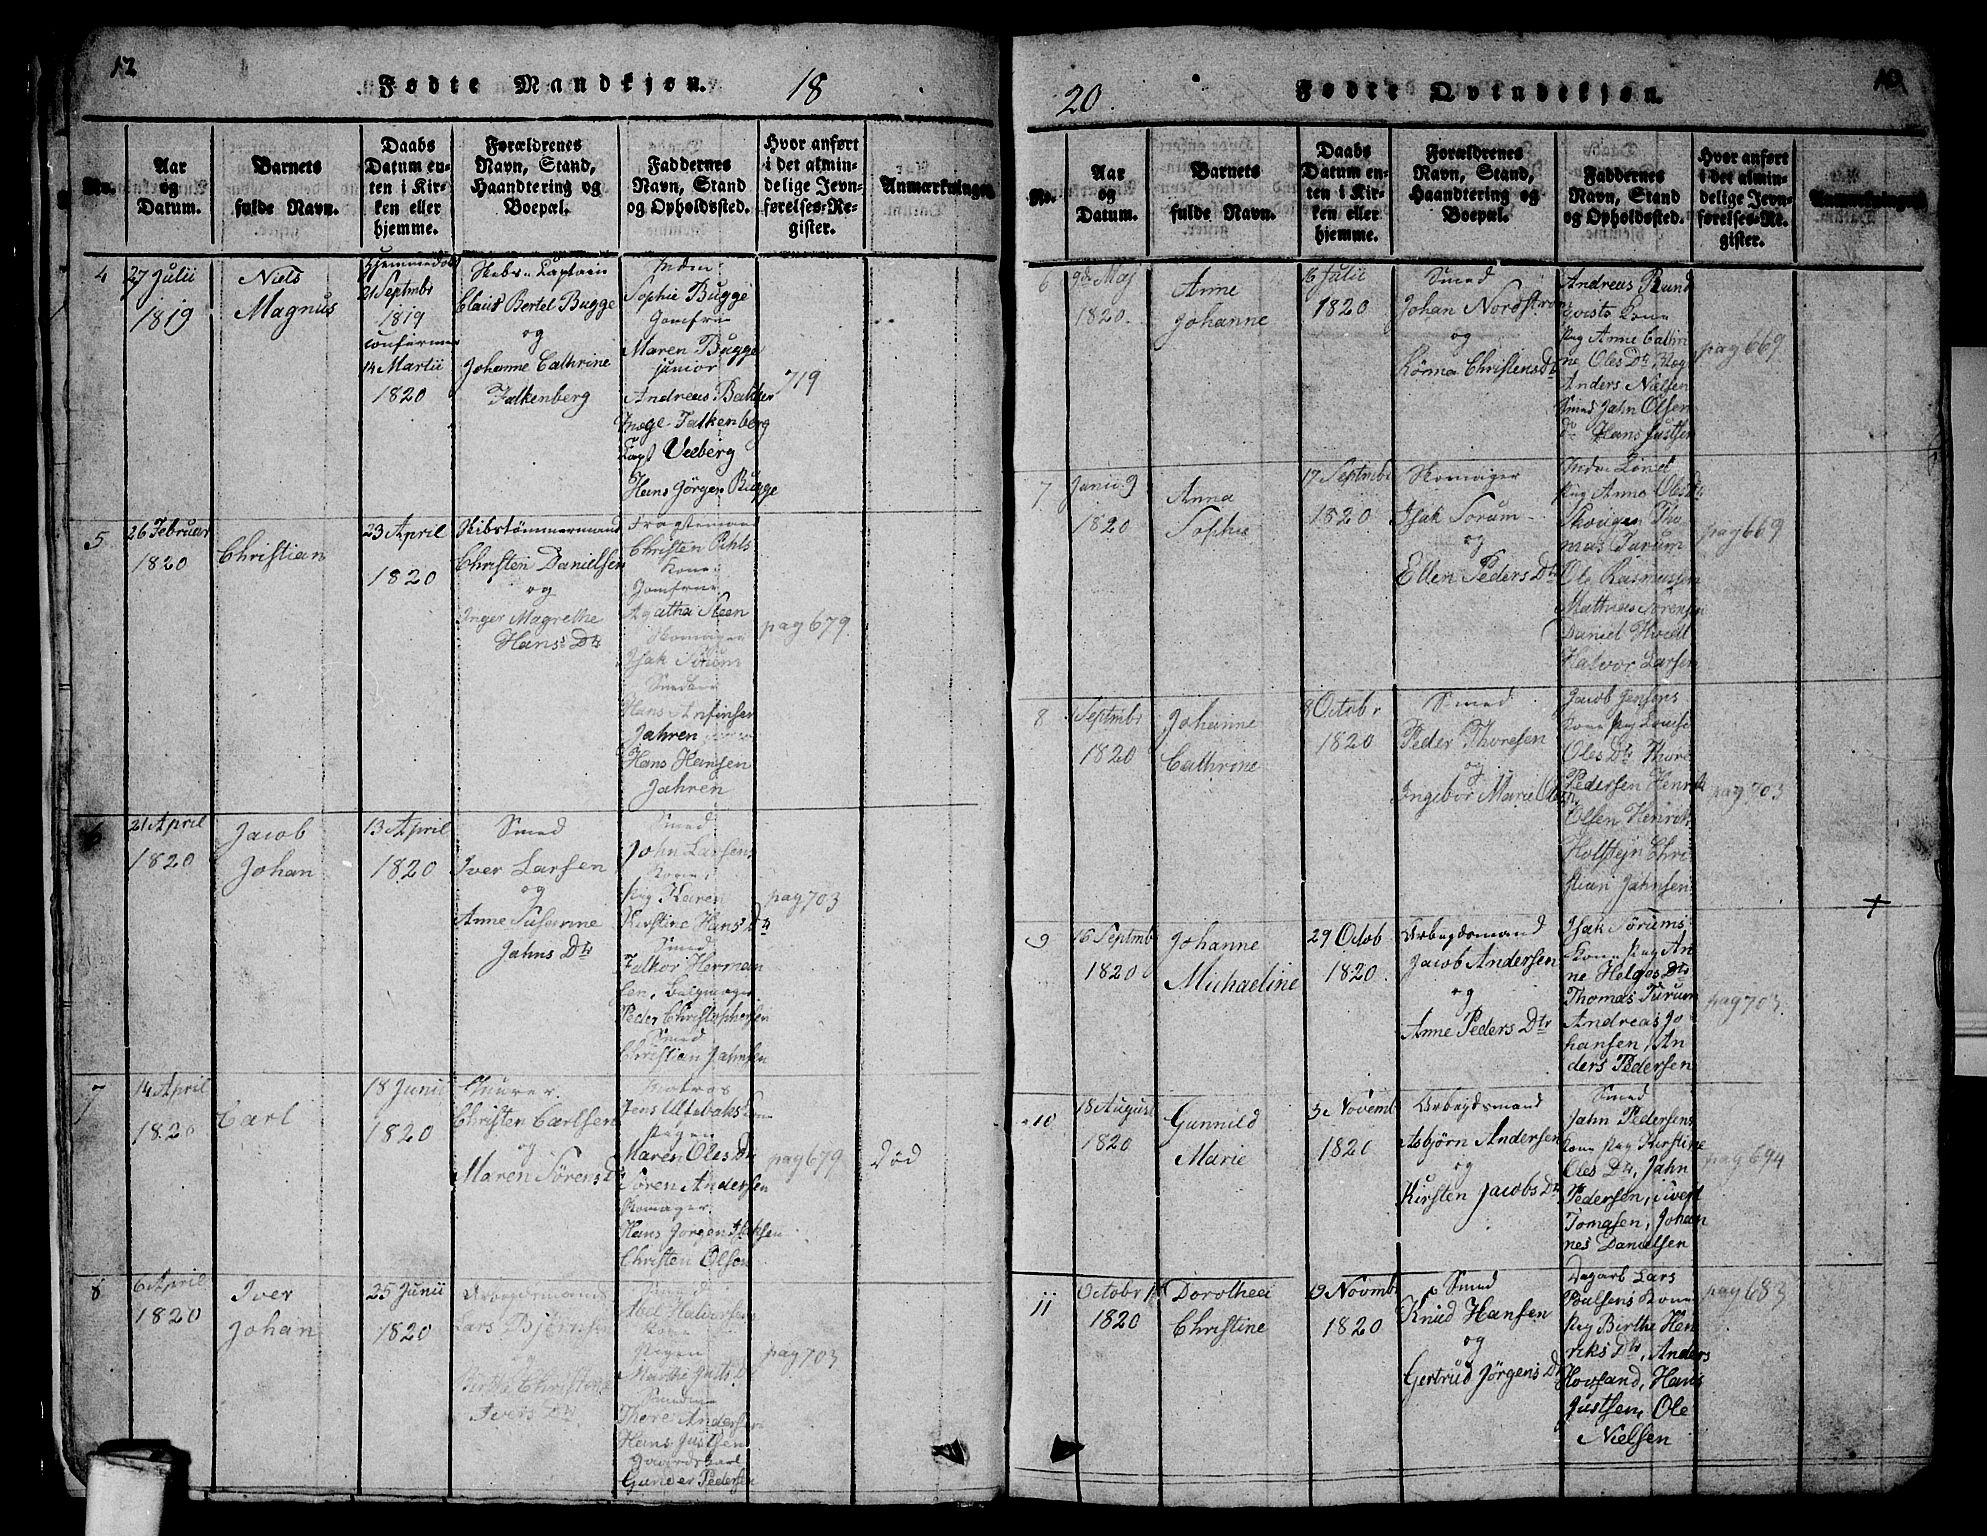 12
Fødte Mandkjøn.
18
No.
Aar og Datum.
Barnets fulde Navn.
Daabs Datum enten i Kirken eller hjemme.
Forældrenes Navn, Stand, Haandtering og Boepæl.
Faddernes Navn, Stand og Opholdssted.
Hvor anført i det almindelige Jevnførelses-Register.
Anmærkninger
4
27 Julii
1819
Niels
Magnus
Hjemmedøbt
21 Septmbr
1819
confirmer
14 Martii
1820
Skibs Captain
Claus Bertel Bugge
og
Johanne Cathrine
Falkenberg
Sophie Bugge
Jomfru
Maren Bugge
junior
Andreas
Falkenberg
Hans Jörgen Bugge
719
5
26 Februar
1820
Christian
23 April
1820
Skibstömmermand
Christen Danielsen
og
Inger Magrethe
Hans Dtr
Christen Pihls
Kone
Jomfru
Agatha Steen
Skomager
Isak Sörum
Hans
Jahren
Hans Hansen
Jahren
pag 679
6
21 April
1820
Jacob
Johan
13 April
1820
Smed
Iver Larsen
og
Anne
Jahns Dtr
Smed
John Larsens
Kone
pig Karen
Kirstine Hans Dtr
Smed
Falkor Herman
sen,
Peder Christophersen
Smed
Christian Jahnsen
pag 703
7
14 April
1820
Carl
18 Junii
1820
Christen Carlsen
og
Maren Sörens D
Matros
Jens
Pigen
Maren Oles Dr
Sören Andersen
Skomager
Hans Jorgen
Christen Olsen
pag 679
Död
8
6 April
1820
Iver
Johan
25 Junii
1820
Arbeidsmand
Lars
og
Ivers Dtr
Smed
Pigen
Thore Andersen
Hans Justsen
Gunder Pedersen
pag 703
20.
Fødte Qvindekjøn.
10
No.
Aar og Datum.
Barnets fulde Navn.
Daabs Datum enten i Kirken eller hjemme.
Forældrenes Navn, Stand, Haandtering og Boepæl.
Faddernes Navn, Stand og Opholdssted.
Hvor anført i det almindelige Jevnførelses-Register.
Anmærkninger
6
9de Maj
1820.
Anne
Johanne
16 Julii
1820
Smed
Johan Nordström
og
Christens Dtr
Andreas Rund
qvists Kone
Pig Anne Cathri
ne Oles Dtr,
Anders Nielsen
Smed Jahn Olsen
Do Hans Justsen
pag 669
7
Junii 9
1820
Anna
Sophie
17 Septmbr
1820
Skomager
Isak Sorum
og
Ellen Peders Dtr
Pig Anne Oles Dtr
Tho
mas
Ole Rasmussen
Mathias Sorensen
Daniel
Halvor Larsen
pag 669
8
Septmbr
1820
Johanne
Cathrine
8 Octobr
1820
Smed
Peder Thoresen
og
Ingebor Marie
Jacob Jensens
Kone Pig Lovise
Oles Dtr Thore
Pedersen Henrik
Olsen Henrik
Holstejn Chri
stian Jahnsen
pag 703
9
16 Septmb
1820
Johanne
Michaeline
29 Octob
1820.
Arbejdsmand
Jacob Andersen
og
Anne Peders Dtr
Isak Sörums
Kone Pig An
ne Helges Dtr
Thomas
Andreas Jo
hansen, An
ders Pedersen
pag 703.
10
18 August
1820
Gunnild
Marie
3 Novemb
1820
Arbejdsmand
Asbjörn Andersen
og
Kirsten Jacobs Dtr
Smed
Jahn Pedersens
Kone Pig Kirstine
Oles Dtr, Jahn
Pedersen, Sivert
Tomasen, Johan
nes Danielsen
pag 694
11
Octobr
1820
Dorothea
Christine
19 Novmb
1820
Smed
Knud Hansen
og
Gertrud Jörgens D
Lars
Poulsens Kone
Pig Birthe Hen
riks Dtr, Anders
Hovland, Hans
Justsen, Ole
Nielsen
pag 683